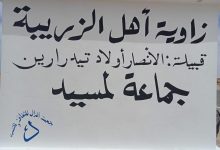 زاوية أهل الزريبة
قبيلة: الأنصار أولاد تيدرارين
جماعة لمسيد